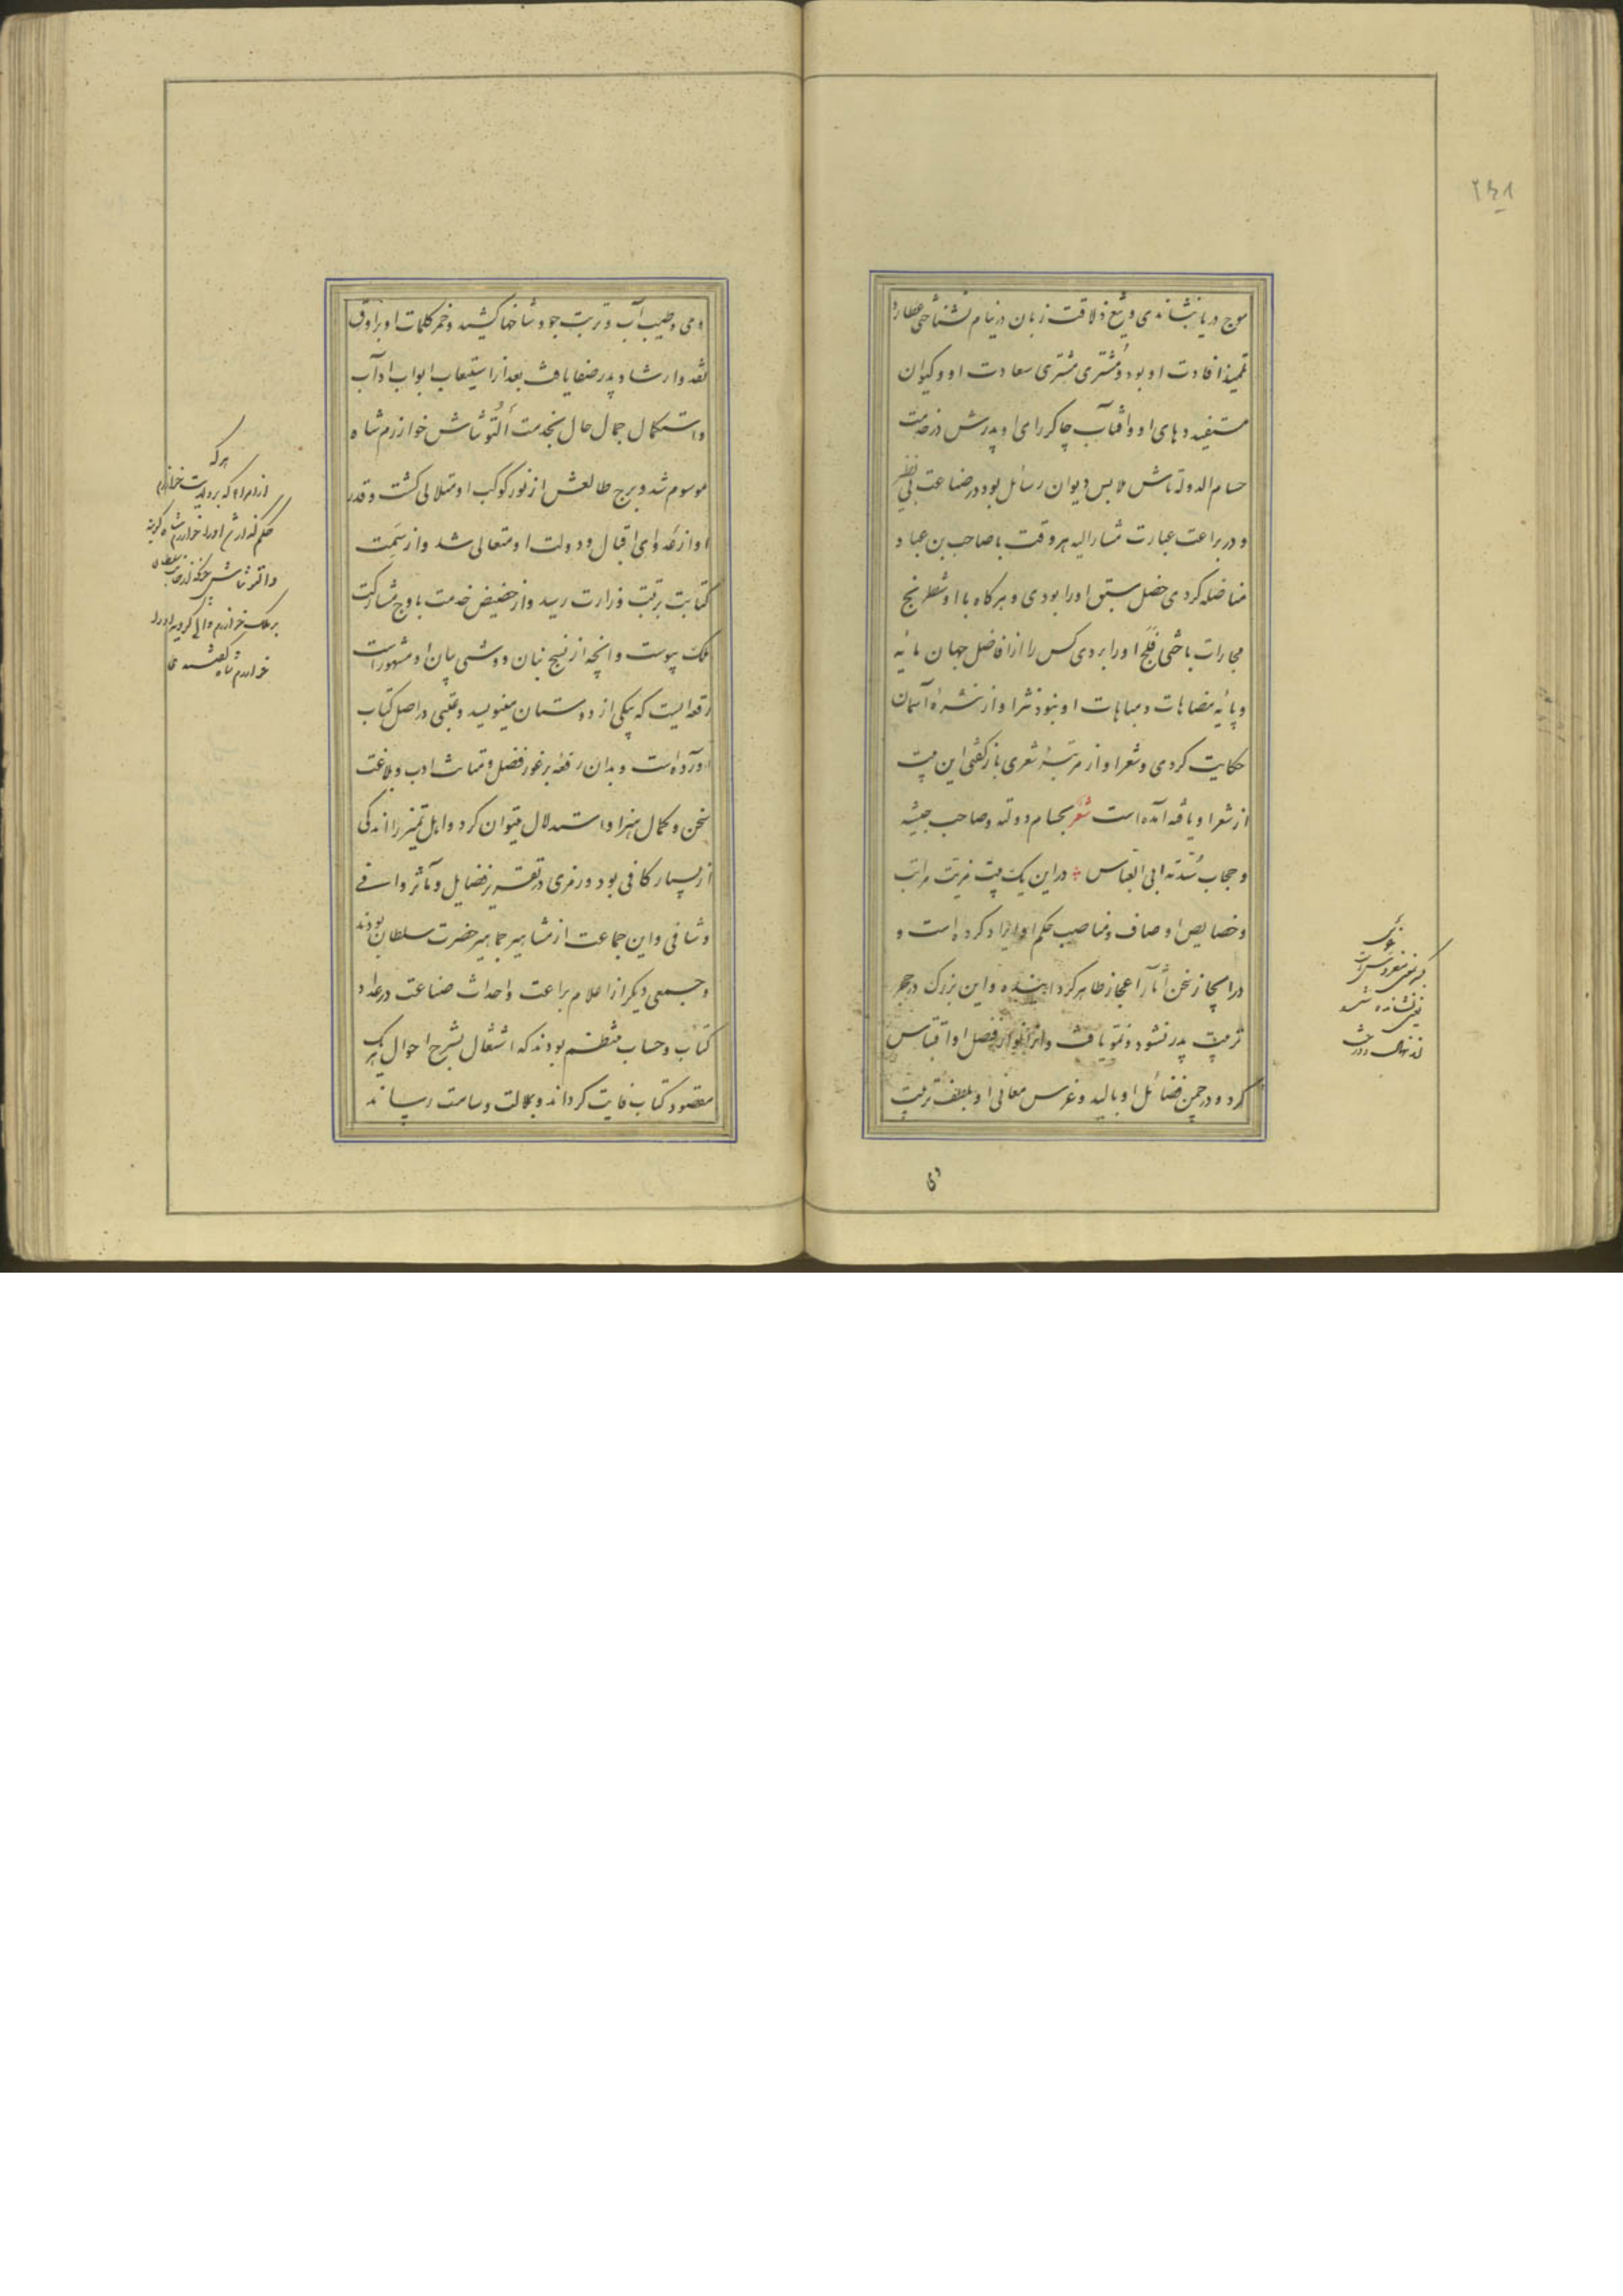 ۲۴۸
موج دریا بنشاندی و تیغ ذلاقت زبان در نیام نشناختی عطارد
تلمیذ افادت او بود و مشتری مشتری سعادت او و کیوان
مستفید دهای او و آفتاب چاکر رای او و پدرش در خدمت
حسام الدوله تاش ملابس دیوان رسائل بود در صناعت بی نظیر
و در براعت عبارت مشار الیه هر وقت با صاحب بن عباد
مناضله کردی خصل سبق او را بودی و هر کاه با او شطرنج
مجارات باختی فلج او را بردی کس را از افاضل جهان مایه
و پایه مضاهات و مباهات او نبود نثر او از نثره آسمان
حکایت کردی و شعر او از مرتبه شعری باز کفتی این بیت
از شعر او یافته آمده است شعر بحسام دولته و صاحب جیشه
و حجاب سدته ابی العباس در این یک بیت مزیت مراتب
و خصایص اوصاف و مناصب حکم او ایراد کرده است و
در ایجاز سخن آثار اعجاز ظاهر کرد اینده و این بزرک در حجر
تربیت پدر نشو و نمو یافت و از انوار فضل او اقتباس
کرد و در چمن فضائل او بالید و غرس معانی او بلطف تربیت
وی
ومی و طیب آب و تربت جو و شاخها کشید و خمر کلمات او براوق
نقد و ارشاد پدر صفا یافت بعد از استیعاب ابواب آداب
و استکمال جمال حال بخدمت التونتاش خوارزم شاه
موسوم شد و برج طالعش از نور کوکب او متلالی کشت و قدر
او از غدوای اقبال و دولت او متعالی شد و از سمت
کتابت برتبت وزارت رسید و از حضیض خدمت باوج مشارکت
ملک پیوست و انچه از نسج بنان و وشی بیان او مشهور است
رقعه ایست که بیکی از دوستان مینویسد و عتبی در اصل کتاب
آورده است و بدان رقعه بر غور فضل و متانت ادب و بلاغت
سخن و کمال هنر او استدلال میتوان کرد و اهل تمیز را اندکی
از بسیار کافی بود و رمزی در تقریر فضایل و مآثر وافی
و شافی و این جماعت از مشاهیر جماهیر حضرت سلطان بودند
و جمعی دیکر از اعلام براعت و احداث صناعت در عداد
کتاب و حساب منتظم بودند که اشتغال بشرح احوال هر یک
مقصود کتاب فایت کرداند و بملالت و سامت رساند
هر که
از امرا که بر ولایت خوارزم
حکم اورا خوارزم شاه کویند
و التونتاش چونکه از جانب سلطان
بر ملک خوارزم والی کردید او را
خوارزم شاه کفتند